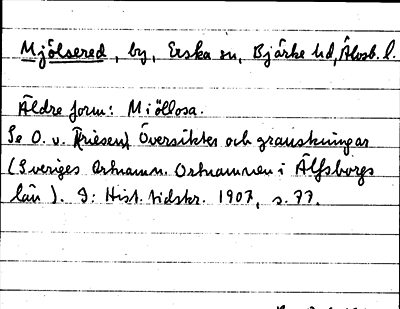 Mjölsered, by, Erska sn, Bjärke hd, Älvsb. l.
Äldre form: Miöllosa.
Se O. v. Friesen, Översikter och granskningar
(Sveriges ortnamn. Ortnamnen i Älfsborgs
län). I: Hist. tidskr. 1907, s. 77.